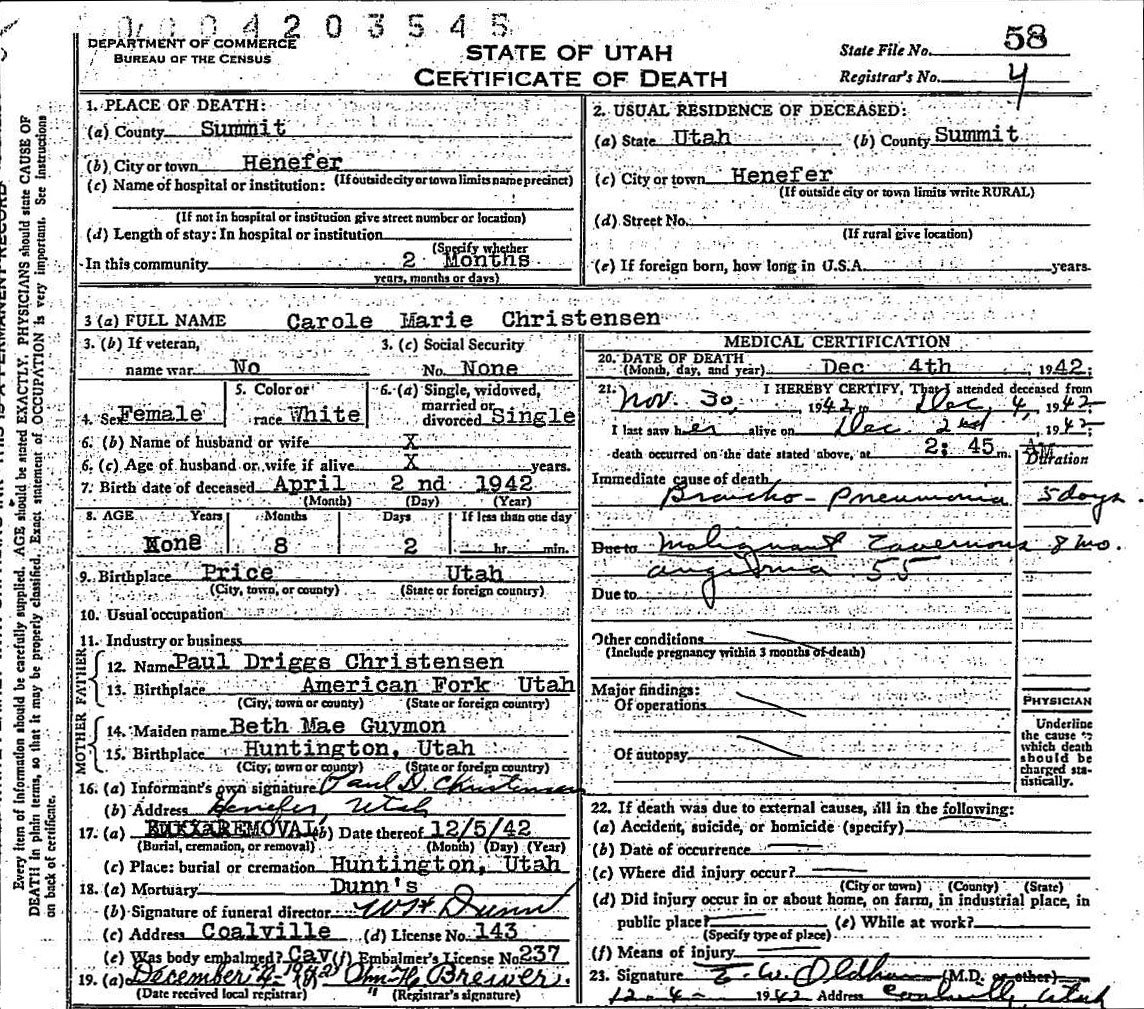 0004203545
DEPARTMENT OF COMMERCE
BUREAU OF THE CENSUS
STATE OF UTAH
CERTIFICATE OF DEATH
State File No. 58
Registrar's No. 4
1. PLACE OF DEATH:
(a) County Summit
(b) City or town Henefer
(If outside city or town limits name precinct)
(c) Name of hospital or institution:
(If not in hospital or institution give street number or location)
(d) Length of stay: In hospital or institution
(Specify whether
In this community 2 Months
years, months or days)
2. USUAL RESIDENCE OF DECEASED:
(a) State Utah (b) County Summit
(c) City or town Henefer
(If outside city or town limits write RURAL)
(d) Street No.
(If rural give location)
(e) If foreign born, how long in U.S.A. years.
3 (a) FULL NAME Carole Marie Christensen
3. (b) If veteran, name war No
3. (c) Social Security No. None
4. Sex Female
5. Color or race White
6. (a) Single, widowed, married or divorced Single
6. (b) Name of husband or wife X
6. (c) Age of husband or wife if alive X years.
7. Birth date of deceased April 2 nd 1942
(Month) (Day) (Year)
8. AGE Years Months Days If less than one day
None 8 2 hr. min.
9. Birthplace Price Utah
(City, town, or county) (State or foreign country)
10. Usual occupation
11. Industry or business
FATHER
12. Name Paul Driggs Christensen
13. Birthplace American Fork Utah
(City, town or county) (State or foreign country)
MOTHER
14. Maiden name Beth Mae Guymon
15. Birthplace Huntington, Utah
(City, town or county) (State or foreign country)
16. (a) Informant's own signature Paul D. Christensen
(b) Address Henefer, Utah
17. (a) REMOVAL (b) Date thereof 12/5/42
(Burial, cremation, or removal) (Month) (Day) (Year)
(c) Place: burial or cremation Huntington, Utah
18. (a) Mortuary Dunn's
(b) Signature of funeral director Dunn
(c) Address Coalville (d) License No. 143
(e) Was body embalmed? Cav (f) Embalmer's License No 237
19. (a) December 4- 1942 (b) Brewer.
(Date received local registrar) (Registrar's signature)
MEDICAL CERTIFICATION
20. DATE OF DEATH
(Month, day, and year) Dec 4th, 1942.
21. I HEREBY CERTIFY, That I attended deceased from
Nov. 30, 1942 to Dec, 4, 1942
I last saw her alive on Dec 2nd, 1942;
death occurred on the date stated above, at 2: 45 m. AM
Duration
Immediate cause of death
Broncho-Pneumonia 5 days
Due to Malignant Cavernous 8 mo.
angioma 55
Due to
Other conditions
(Include pregnancy within 3 months of death)
Major findings:
Of operations
Of autopsy
PHYSICIAN
Underline
the cause to
which death
should be
charged sta-
tistically.
22. If death was due to external causes, fill in the following:
(a) Accident, suicide, or homicide (specify)
(b) Date of occurrence
(c) Where did injury occur?
(City or town) (County) (State)
(d) Did injury occur in or about home, on farm, in industrial place, in
public place? (e) While at work?
(Specify type of place)
(f) Means of injury
23. Signature E. W. Oldham (M.D. or other)
12-4- 1942 Address Coalville, Utah
Every item of information should be carefully supplied. AGE should be stated EXACTLY. PHYSICIANS should state CAUSE OF
DEATH in plain terms, so that it may be properly classified. Exact statement of OCCUPATION is very important. See instructions
on back of certificate.